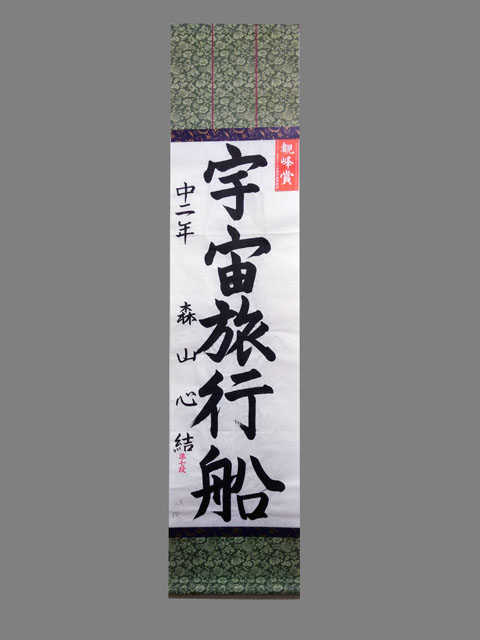 観峰賞
宇宙旅行船
中二年 森山心結
準七段